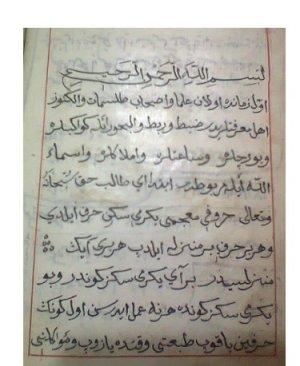 بسم الله الرحمن الرحيم
اول زمانده اولان علما واصحاب طلسمات والكنوز
اهل معرفتلر در ضبط وربط والبخور ايله كواكبلرى
وبورجلرى وساعتلرى واملاكلرى واسماء
الله بوطرب ابتداى طالب حق سبحانه
وتعالى حروف معجمى يكرمى سكز حرف ايلدى
وهر بر حرف بر منزله ايلدى هر برى ايك
منزلسيدر بر آى يكرمى سكز كوندر وبو
يكرمى سكز كونده هر نه عمل ايدرسن اول كونك
حرفين باقوب طبعتى وقنده يازوب